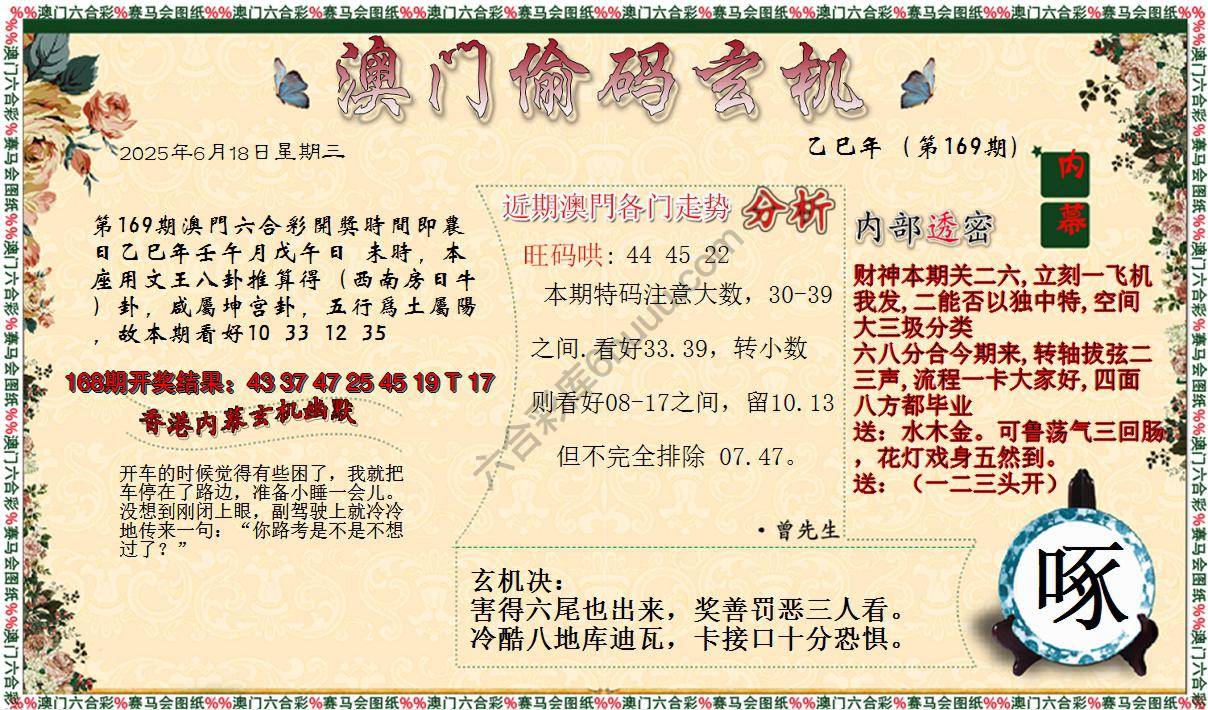 %%澳门六合彩%赛马会图纸%%澳门六合彩%赛马会图纸%%澳门六合彩%赛马会图纸%%澳门六合彩%赛马会图纸%%澳门六合彩%赛马会图纸%%澳门六合彩%赛马会图纸
澳门偷码玄机
2025年6月18日星期三
乙巳年（第169期）
内
幕
第169期澳門六合彩開獎時間即農
日乙巳年壬午月戊午日 未時，本
座用文王八卦推算得（西南房日牛
）卦，咸屬坤宫卦，五行爲土屬陽
，故本期看好10 33 12 35
168期开奖结果：43 37 47 25 45 19 T 17
香港内幕玄机幽默
开车的时候觉得有些困了，我就把
车停在了路边，准备小睡一会儿。
没想到刚闭上眼，副驾驶上就冷冷
地传来一句：“你路考是不是不想
过了？”
近期澳門各门走势 分析
旺码哄: 44 45 22
本期特码注意大数，30-39
之间.看好33.39，转小数
则看好08-17之间，留10.13
但不完全排除 07.47。
·曾先生
内部透密
财神本期关二六,立刻一飞机
我发,二能否以独中特,空间
大三圾分类
六八分合今期来,转轴拔弦二
三声,流程一卡大家好,四面
八方都毕业
送：水木金。可鲁荡气三回肠
，花灯戏身五然到。
送：（一二三头开）
玄机决：
害得六尾也出来，奖善罚恶三人看。
冷酷八地库迪瓦，卡接口十分恐惧。
啄
六合彩库6huuu.com
%%澳门六合彩%赛马会图纸%%澳门六合彩%赛马会图纸%%澳门六合彩%赛马会图纸%%澳门六合彩%赛马会图纸%%澳门六合彩%赛马会图纸%%澳门六合彩%赛马会图纸